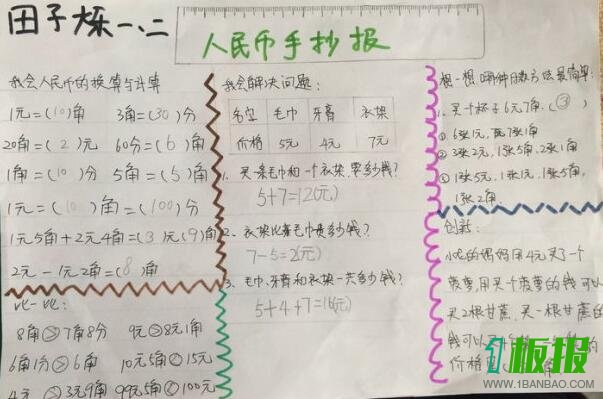 田子烁一、二
人民币手抄报
我会人民币的换算与计算
1元=(10)角 3角=(30)分
20角=(2)元 60分=(6)角
1角=(10)分 5角=(5)角
1元=(10)角=(100)分
1元5角+2元4角=(3)元(9)角
2元-1元2角=(8)角
比一比:
8角>7角8分 9元>8元1角
6角1分>6角 10元5角<15元
3元9角 99元5角<100元
我会解决问题:
名字 毛巾 牙膏 衣架
价格 5元 4元 7元
1. 买一条毛巾和一个衣架,要多少钱?
5+7=12(元)
2. 衣架比毛巾贵多少钱?
7-5=2(元)
3. 毛巾、牙膏和衣架一共多少钱?
5+4+7=16(元)
想一想哪种付款方法最简单:
1. 买一个杯子6元7角.(③)
① 6张1元,7张1角
② 3张2元,1张5角,2张1角
③ 1张5元,1张1元,1张5角,
1张2角.
创新:
小心的妈妈用4元买了一个
菠萝,用买一个菠萝的钱可以
买2根甘蔗,买一根甘蔗的
钱可以
价格是 角
1板报
WWW.1BANBAO.COM